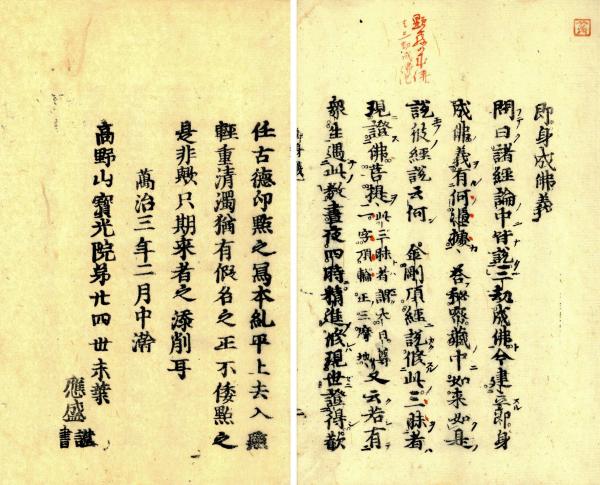 即身成佛義
問曰諸經論中皆說三劫成佛今建立即身
成佛義有何憑據答秘密藏中如來如是
說彼經說云何 金剛頂經說修此三昧者
現證佛菩提此三昧者謂大日尊一字頂輪王三摩地又云若有
衆生遇此教晝夜四時精進修現世證得歡
任古德印點之寫本糺平上去入
輕重清濁猶有假名之正不倭點之
是非歟只期來者之添削耳
萬治三年二月中澣
高野山寶光院第廿四世末葉
應盛
謹書